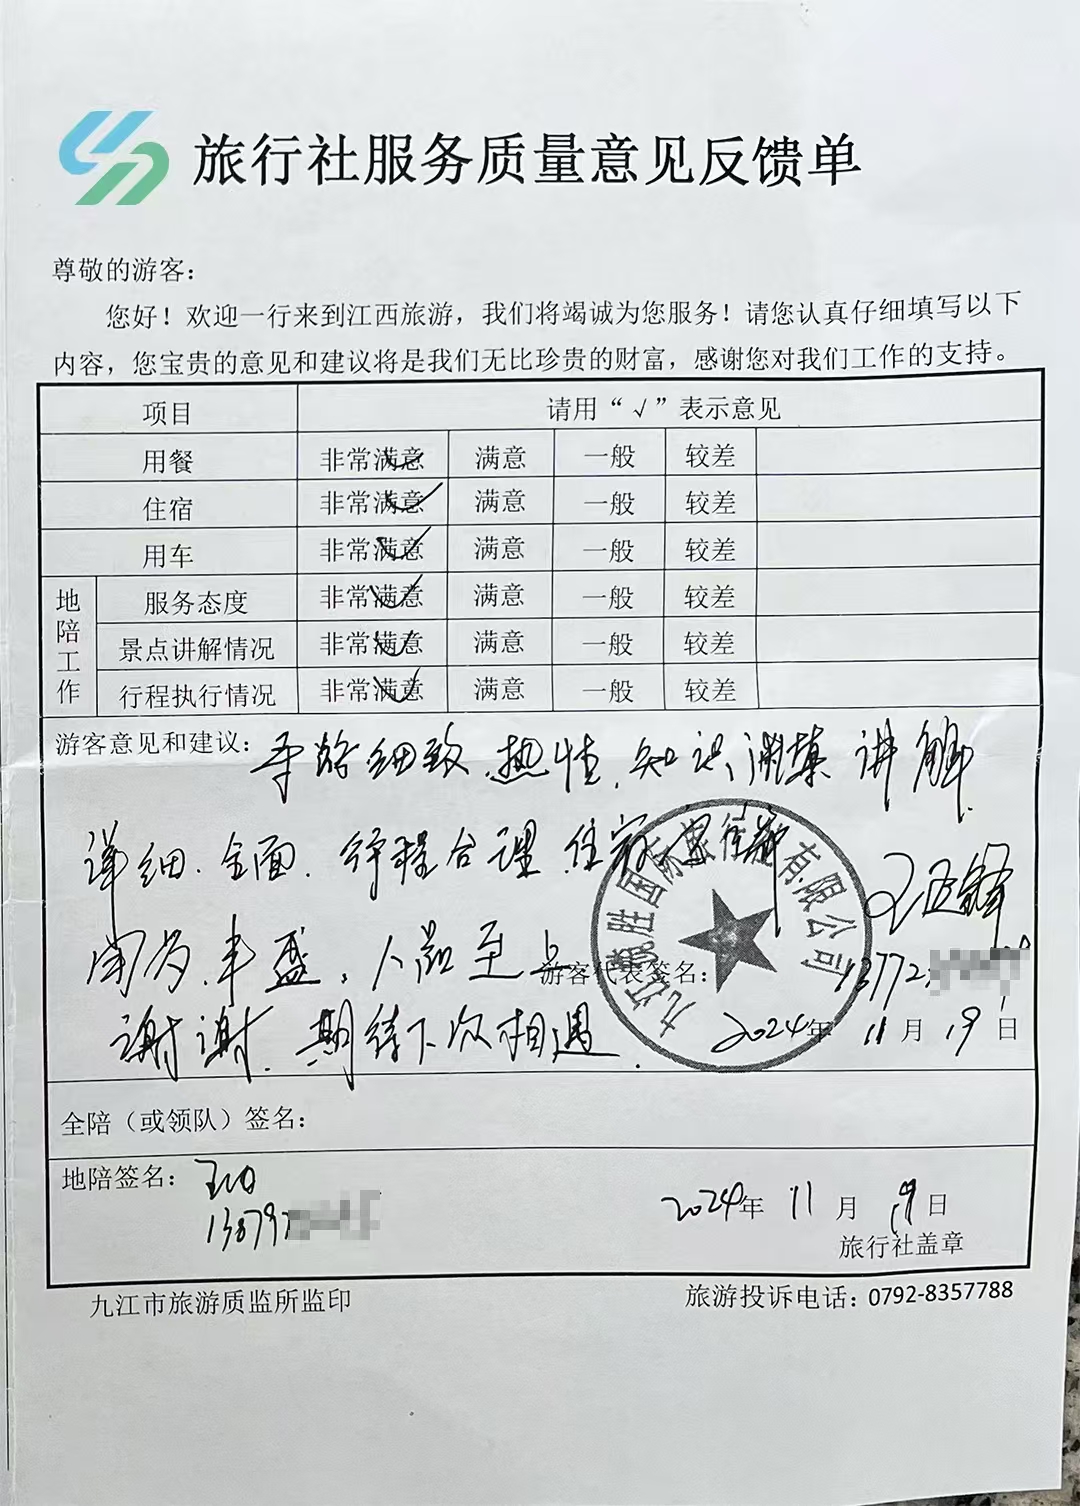 旅行社服务质量意见反馈单
尊敬的游客：
您好！欢迎一行来到江西旅游，我们将竭诚为您服务！请您认真仔细填写以下
内容，您宝贵的意见和建议将是我们无比珍贵的财富，感谢您对我们工作的支持。
项目 请用“√”表示意见
用餐 非常满意 满意 一般 较差
住宿 非常满意 满意 一般 较差
用车 非常满意 满意 一般 较差
地陪工作
服务态度 非常满意 满意 一般 较差
景点讲解情况 非常满意 满意 一般 较差
行程执行情况 非常满意 满意 一般 较差
游客意见和建议：导游细致、热性、知识渊集 讲解
详细、全面、行程合理、住宿
丰盛、人品至上
游客代表签名：
13772
谢谢、期待下次相遇
2024年11月19日
国际旅行社有限公司
全陪（或领队）签名：
地陪签名：
13879
2024年11月19日
旅行社盖章
九江市旅游质监所监印 旅游投诉电话：0792-8357788